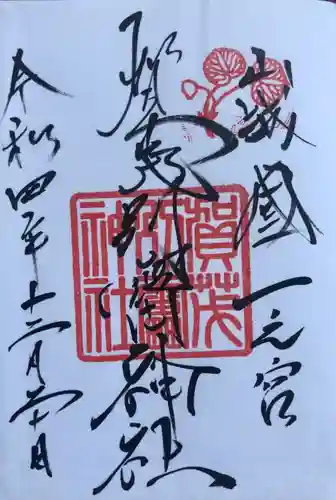 山城國一之宮
賀茂別雷神社
令和四年十二月二十日
賀茂別雷神社